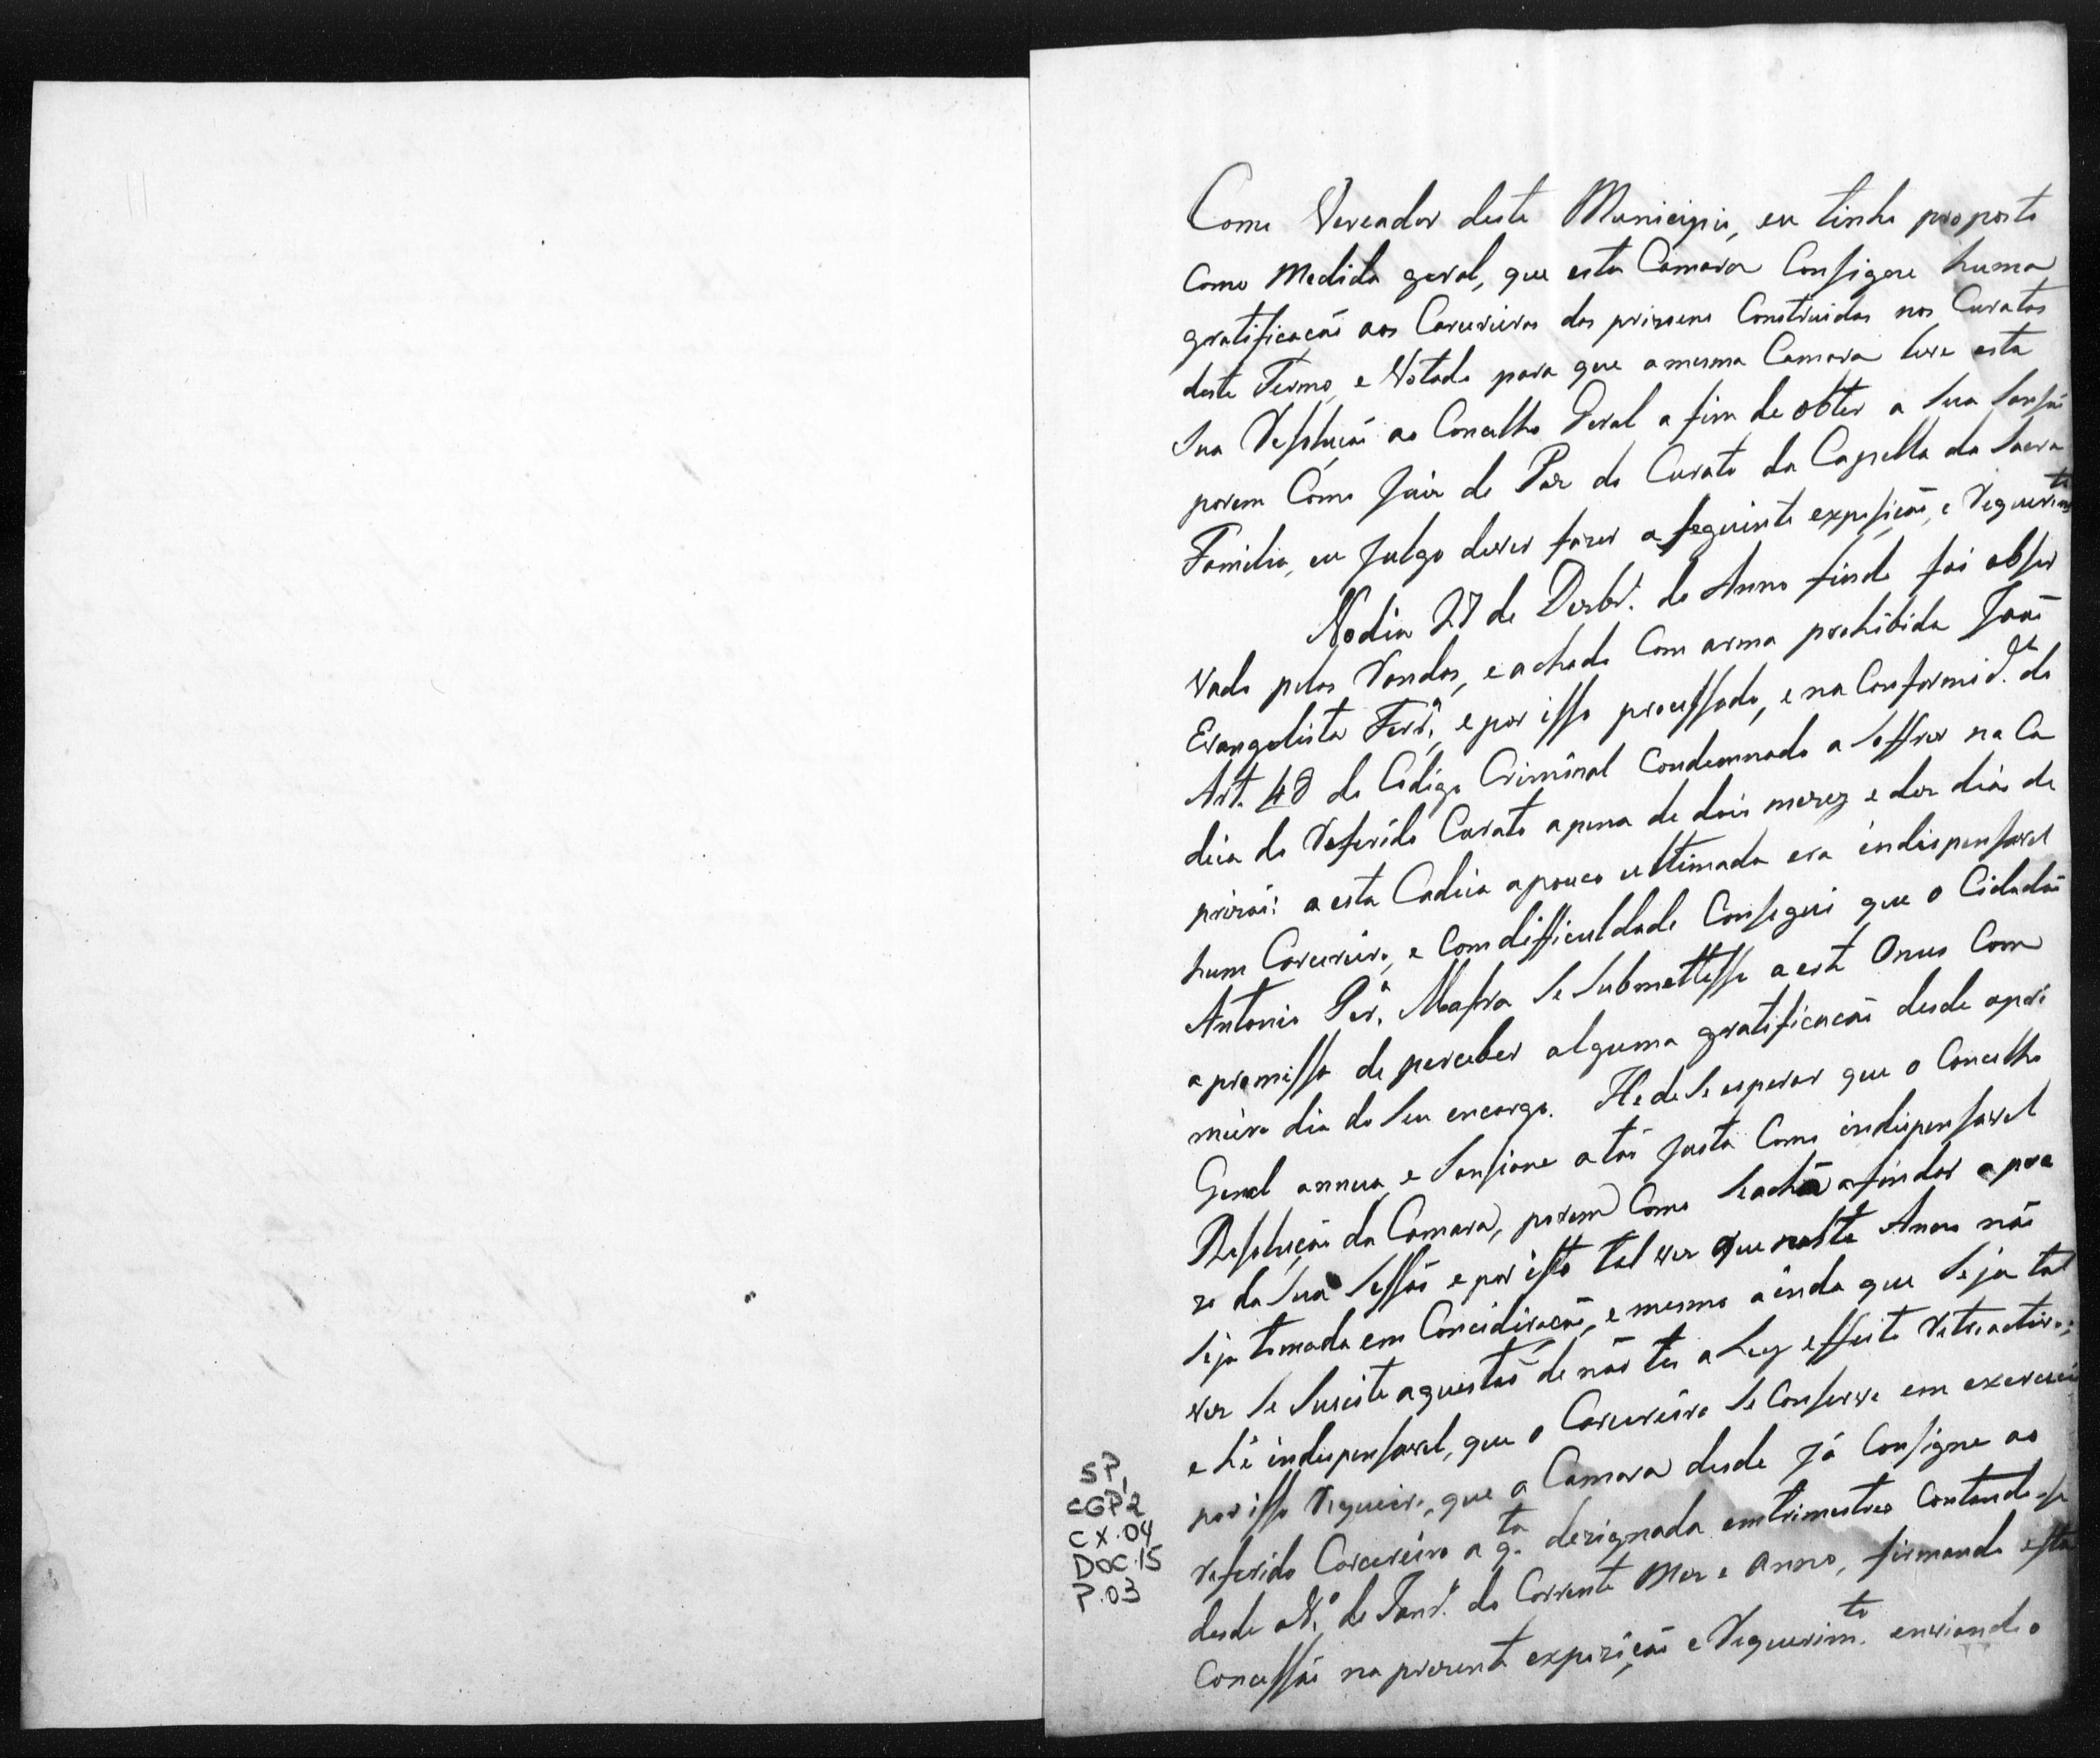 Como Vereador deste Municipio, eu tinha proposto
como Medida geral, que esta Camara Consigne huma
gratificação aos Carcereiros das prizoens Construidas nos Curatos
deste Termo, e Votado para que a mesma Camara leve esta
sua Resolução ao Concelho Geral a fim de obter a sua Sansão
porem Como Juiz de Paz do Curato da Capella da Sacra
Familia, eu julgo dever fazer a seguinte exposição, e Requerimto
No dia 27 de Dezbr.º do Anno findo foi obser
vado pelas Rondas, e achado Com arma prohibida João
Evangelista Ferr.ª, e por isso processado, e na Conformid.de do
Art. 48 do Codigo Criminal Condemnado a soffrer na Ca
deia do Referido Curato apena de dois mezes e dez dias de
prizão: a esta Cadeia apouco ultimada era indispensavel
hum Carcereiro, e Com difficuldade Consegui que o Cidadão
Antonio Per.ª Mafra se submettesse a este Onus Com
a promissa de perceber alguma gratificacão desde opri
meiro dia do seu encargo. He de se esperar que o Concelho
Geral annua, e Sansione a tão justa Como indispensavel
Resolução da Camara, porem Como se achão a findar o pra
zo da sua Sessão e por isto tal vez que neste Anno não
seja tomada em Concideração, e mesmo ainda que seja tal
vez se suscite aquestão de não ter a Ley effeito retroactivo;
e hé indispensavel, que o Carcereiro se Conserve em exercicio
por isso Requeiro, que a Camara desde já Consigne ao
referido Carcereiro a q.ta dezignada em trimestres Contando-se
desde o 1.º de Janr.º do Corrente Mez e Anno, firmando esta
Concessão na prezente expozição e Requerim.to enviando o
SP,
CGP2
CX.04
DOC.15
P.03